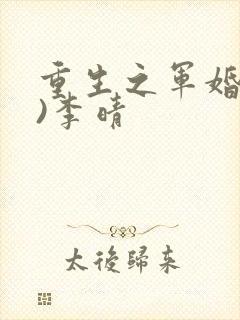 重生之军婚
)李晴
太後歸来